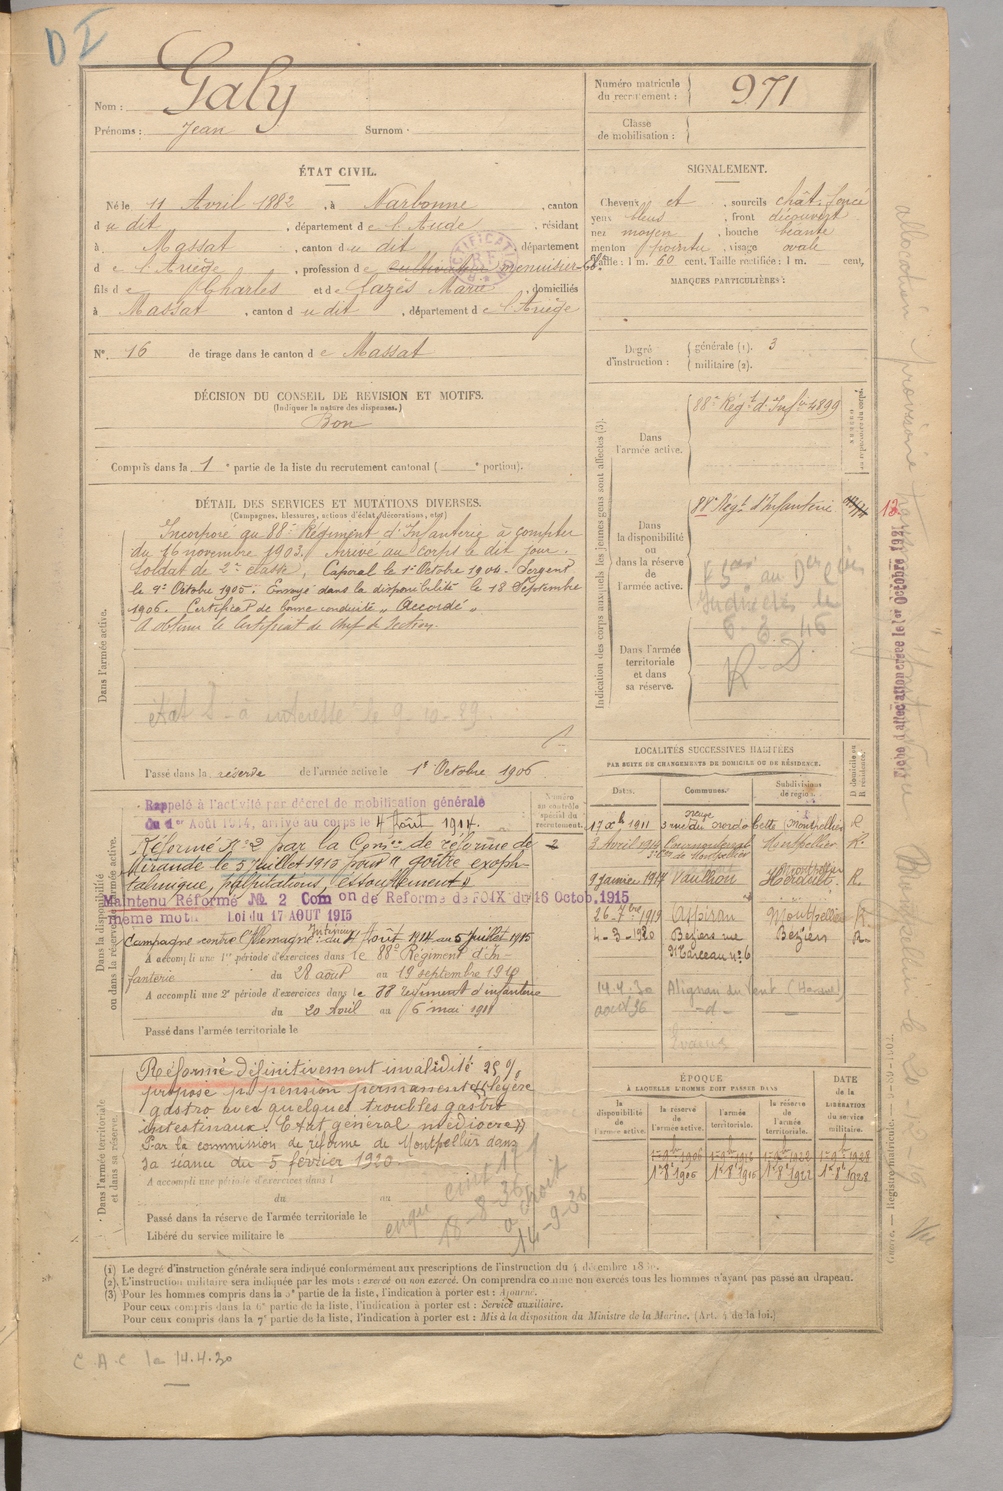 D I
Nom : Galy
Prénoms : Jean Surnom :
ÉTAT CIVIL.
Né le 11 Avril 1882, à Narbonne, canton
du dit, département de l'Aude, résidant
à Massat, canton du dit, département
de l'Ariège, profession de cultivateur menuisier
fils de Charles et de Cazes Marie, domiciliés
à Massat, canton du dit, département de l'Ariège
N° 16 de tirage dans le canton de Massat
DÉCISION DU CONSEIL DE REVISION ET MOTIFS.
(Indiquer la nature des dispenses.)
Bon
Compris dans la 1e partie de la liste du recrutement cantonal ( e portion).
DÉTAIL DES SERVICES ET MUTATIONS DIVERSES.
(Campagnes, blessures, actions d'éclat, décorations, etc.)
Dans l'armée active.
Incorporé au 88e Régiment d'Infanterie à compter
du 16 novembre 1903. Arrivé au corps le dit jour.
Soldat de 2e classe, Caporal le 1er Octobre 1904. Sergent
le 9 Octobre 1905. Envoyé dans la disponibilité le 18 Septembre
1906. Certificat de bonne conduite "Accordé".
A obtenu le Certificat de Chef de Section.
Passé dans la réserve de l'armée active le 1er Octobre 1906
Dans la disponibilité ou dans la réserve de l'armée active.
Numéro au contrôle spécial du recrutement.
2
Rappelé à l'activité par décret de mobilisation générale
du 1er Août 1914, arrivé au corps le 4 Août 1914.
Réformé N° 2 par la Comon de réforme de
Mirande le 5 juillet 1915 pour "goître exoph-
talmique, palpitations, essoufflement"
Maintenu Réformé No. 2 Comon de Reforme de FOIX du 16 Octob. 1915
même motif Loi du 17 AOUT 1915
Campagne contre l'Allemagne Intérieur du 4 Août 1914 au 5 juillet 1915
A accompli une 1re période d'exercices dans le 88e Régiment d'In-
fanterie du 28 août au 19 septembre 1910
A accompli une 2e période d'exercices dans le 88 régiment d'infanterie
du 20 Avril au 6 mai 1911
Passé dans l'armée territoriale le
Dans l'armée territoriale et dans sa réserve.
Réformé définitivement invalidité 25 %
proposé pr pension permanente (légère
gastro avec quelques troubles gastro
intestinaux. Etat général médiocre)
Par la commission de réforme de Montpellier dans
sa séance du 5 février 1920.
A accompli une période d'exercices dans l
du au
18-8-36
14-9-36
Passé dans la réserve de l'armée territoriale le
Libéré du service militaire le
Numéro matricule du recrutement : 971
Classe de mobilisation :
SIGNALEMENT.
Cheveux et, sourcils chât. foncé
yeux bleus, front découvert
nez moyen, bouche béante
menton pointu, visage ovale
Taille : 1 m. 60 cent. Taille rectifiée : 1 m. cent.
MARQUES PARTICULIÈRES :
Degré d'instruction : générale (1). 3
militaire (2).
Indication des corps auxquels les jeunes gens sont affectés (3).
Dans l'armée active.
88e Régt d'Infie 4899
Dans la disponibilité ou dans la réserve de l'armée active.
88e Régt d'Infanterie
Dans l'armée territoriale et dans sa réserve.
R-D
LOCALITÉS SUCCESSIVES HABITÉES
PAR SUITE DE CHANGEMENTS DE DOMICILE OU DE RÉSIDENCE.
Dates. Communes. Subdivisions de région. D domicile ou R résidence.
17 xbre 1911 Cette Montpellier R
3 Avril 1914 Montpellier R.
9 janvier 1917 Vailhan Hérault R.
26-7bre 1919 Aspiran Montpellier R
4-3-1920 Béziers rue Béziers R
Marceau n° 6
14.4.30 Alignan du Vent (Hérault)
août 36 -d-
ÉPOQUE
À LAQUELLE L'HOMME DOIT PASSER DANS
DATE de la LIBÉRATION du service militaire.
la disponibilité de l'armée active. la réserve de l'armée active. l'armée territoriale. la réserve de l'armée territoriale.
1er 8bre 1906 1er 8bre 1916 1er 8bre 1922 1er 8bre 1928
(1) Le degré d'instruction générale sera indiqué conformément aux prescriptions de l'instruction du 4 décembre 1889.
(2) L'instruction militaire sera indiquée par les mots : exercé ou non exercé. On comprendra comme non exercés tous les hommes n'ayant pas passé au drapeau.
(3) Pour les hommes compris dans la 5e partie de la liste, l'indication à porter est : Ajourné.
Pour ceux compris dans la 6e partie de la liste, l'indication à porter est : Service auxiliaire.
Pour ceux compris dans la 7e partie de la liste, l'indication à porter est : Mis à la disposition du Ministre de la Marine. (Art. 4 de la loi.)
C A C le 14.4.30
Fiche d'affectation créée le 1er Octobre 1921